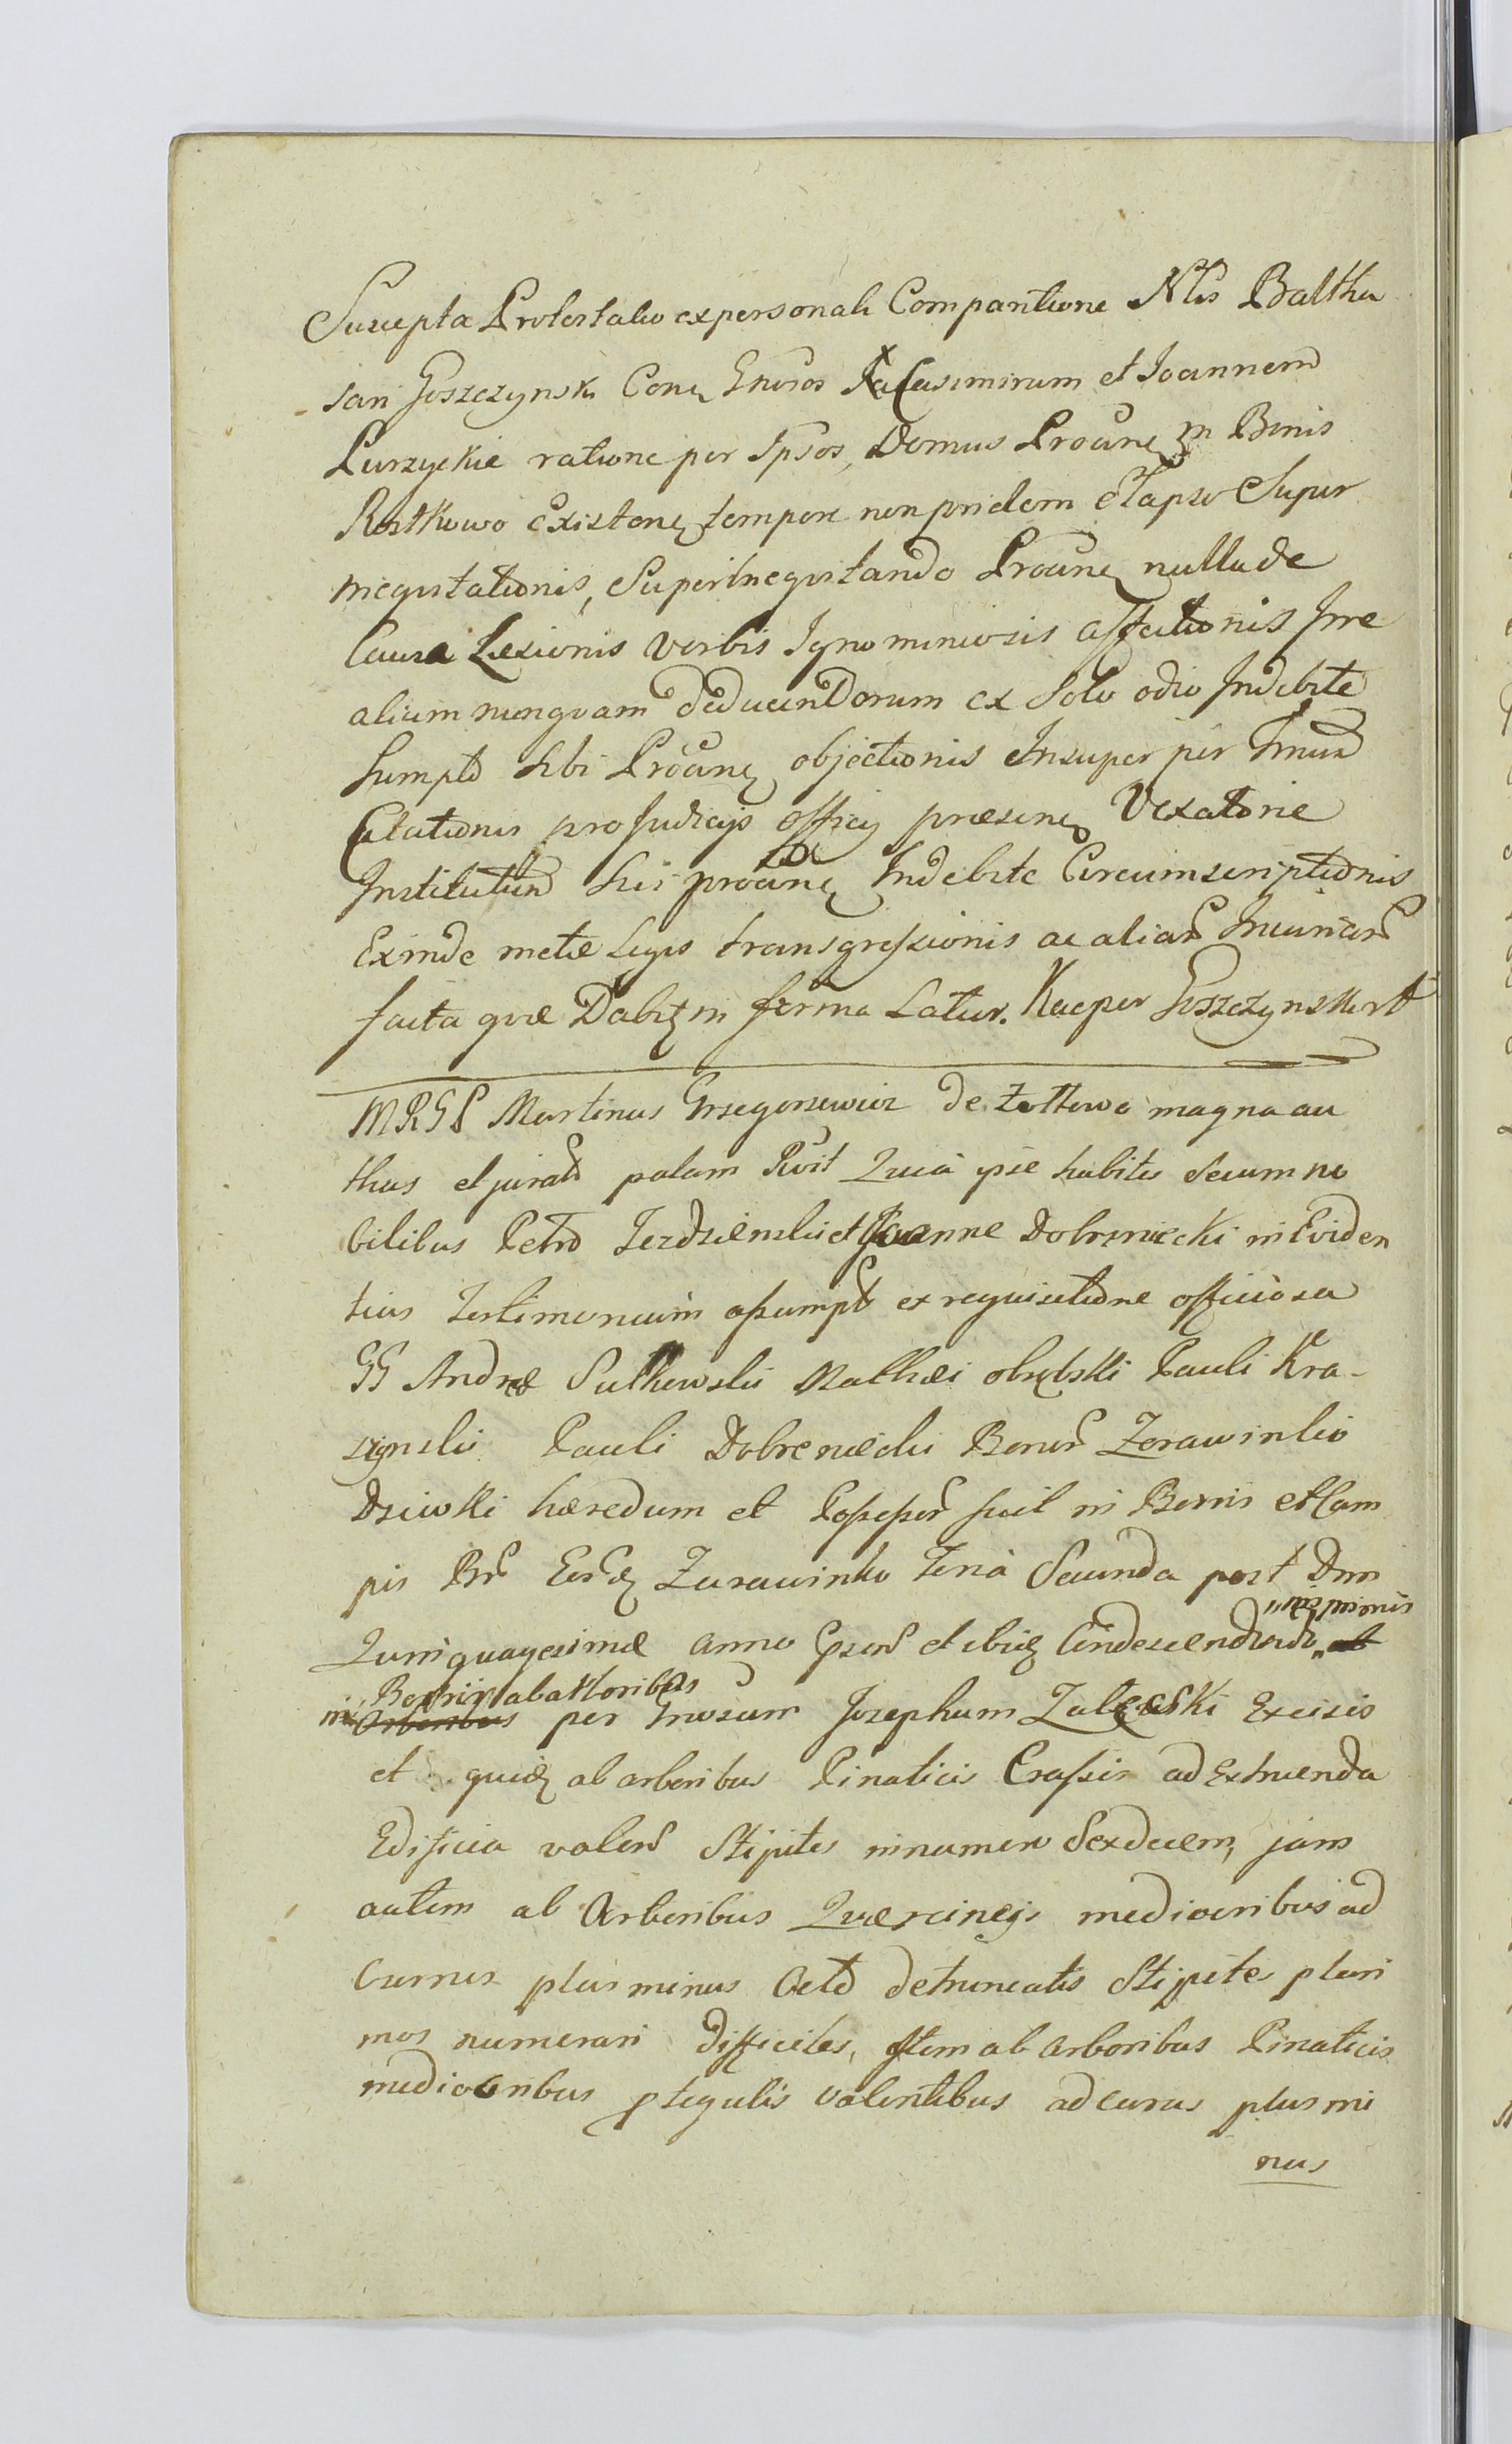 Suscepta Protestatio ex personali Comparitione Nlis Baltha
sari Goszczynski Con Gnrsos Casimirum et Joannem
Purzyckie ratione per Ipsos, Domus Proan in Bonis
Rostkowo Existen tempore non pridem Elapso Super
inequitationis, Superinequitando Proan nulla de
Causa Læsionis verbis Ignominiosis affectionis
alium nunquam deducendorum ex Solo odio Indebite
Sumpto Sibi Proan objectionis Insuper per
Citationis pro Judicijs officij præsen Vexatorie
Institutum Sui proan Indebite Circumscriptionis
Exinde metæ Legis transgressionis ac aliar Iniuriar
facta quæ Dabit in forma Latur. Kacper Goszczynski
MRGL Martinus Grzegorzewicz de Zottowo magna au
thus et jurato palam Rvit Quia ipse habitis Secum no
bilibus Petro Jezdzienski et Joanne Dobrzniecki in Eviden
tius testimonium assumpt ex requisitione officiosa
GG Andreæ Sulkowski Mathæi obrębski Pauli Kra-
szynski Pauli Dobreniecki Bonor Zorawinko
Dziwki hæredum et Possessor fuit in Bonis et Cam
pis Zurawinko feria Secunda post Dnm
in primis
Quinquagesimæ anno et ibi Condescendendo
in Bonis ab arboribus
Arboribus per Gnrosum Josephum Zaleski Excisis
et quid ab arboribus Pinaticis Crassis ad Extruenda
Edificia valen Stipites in numero Sexdecem, jam
autem ab Arboribus Quercineis mediocribus ad
Currus plus minus Octo detruncatis Stipites pluri
mos numerari difficiles, Item ab arboribus Pinaticis
mediocribus p tegulis valentibus ad currus plus mi
nus